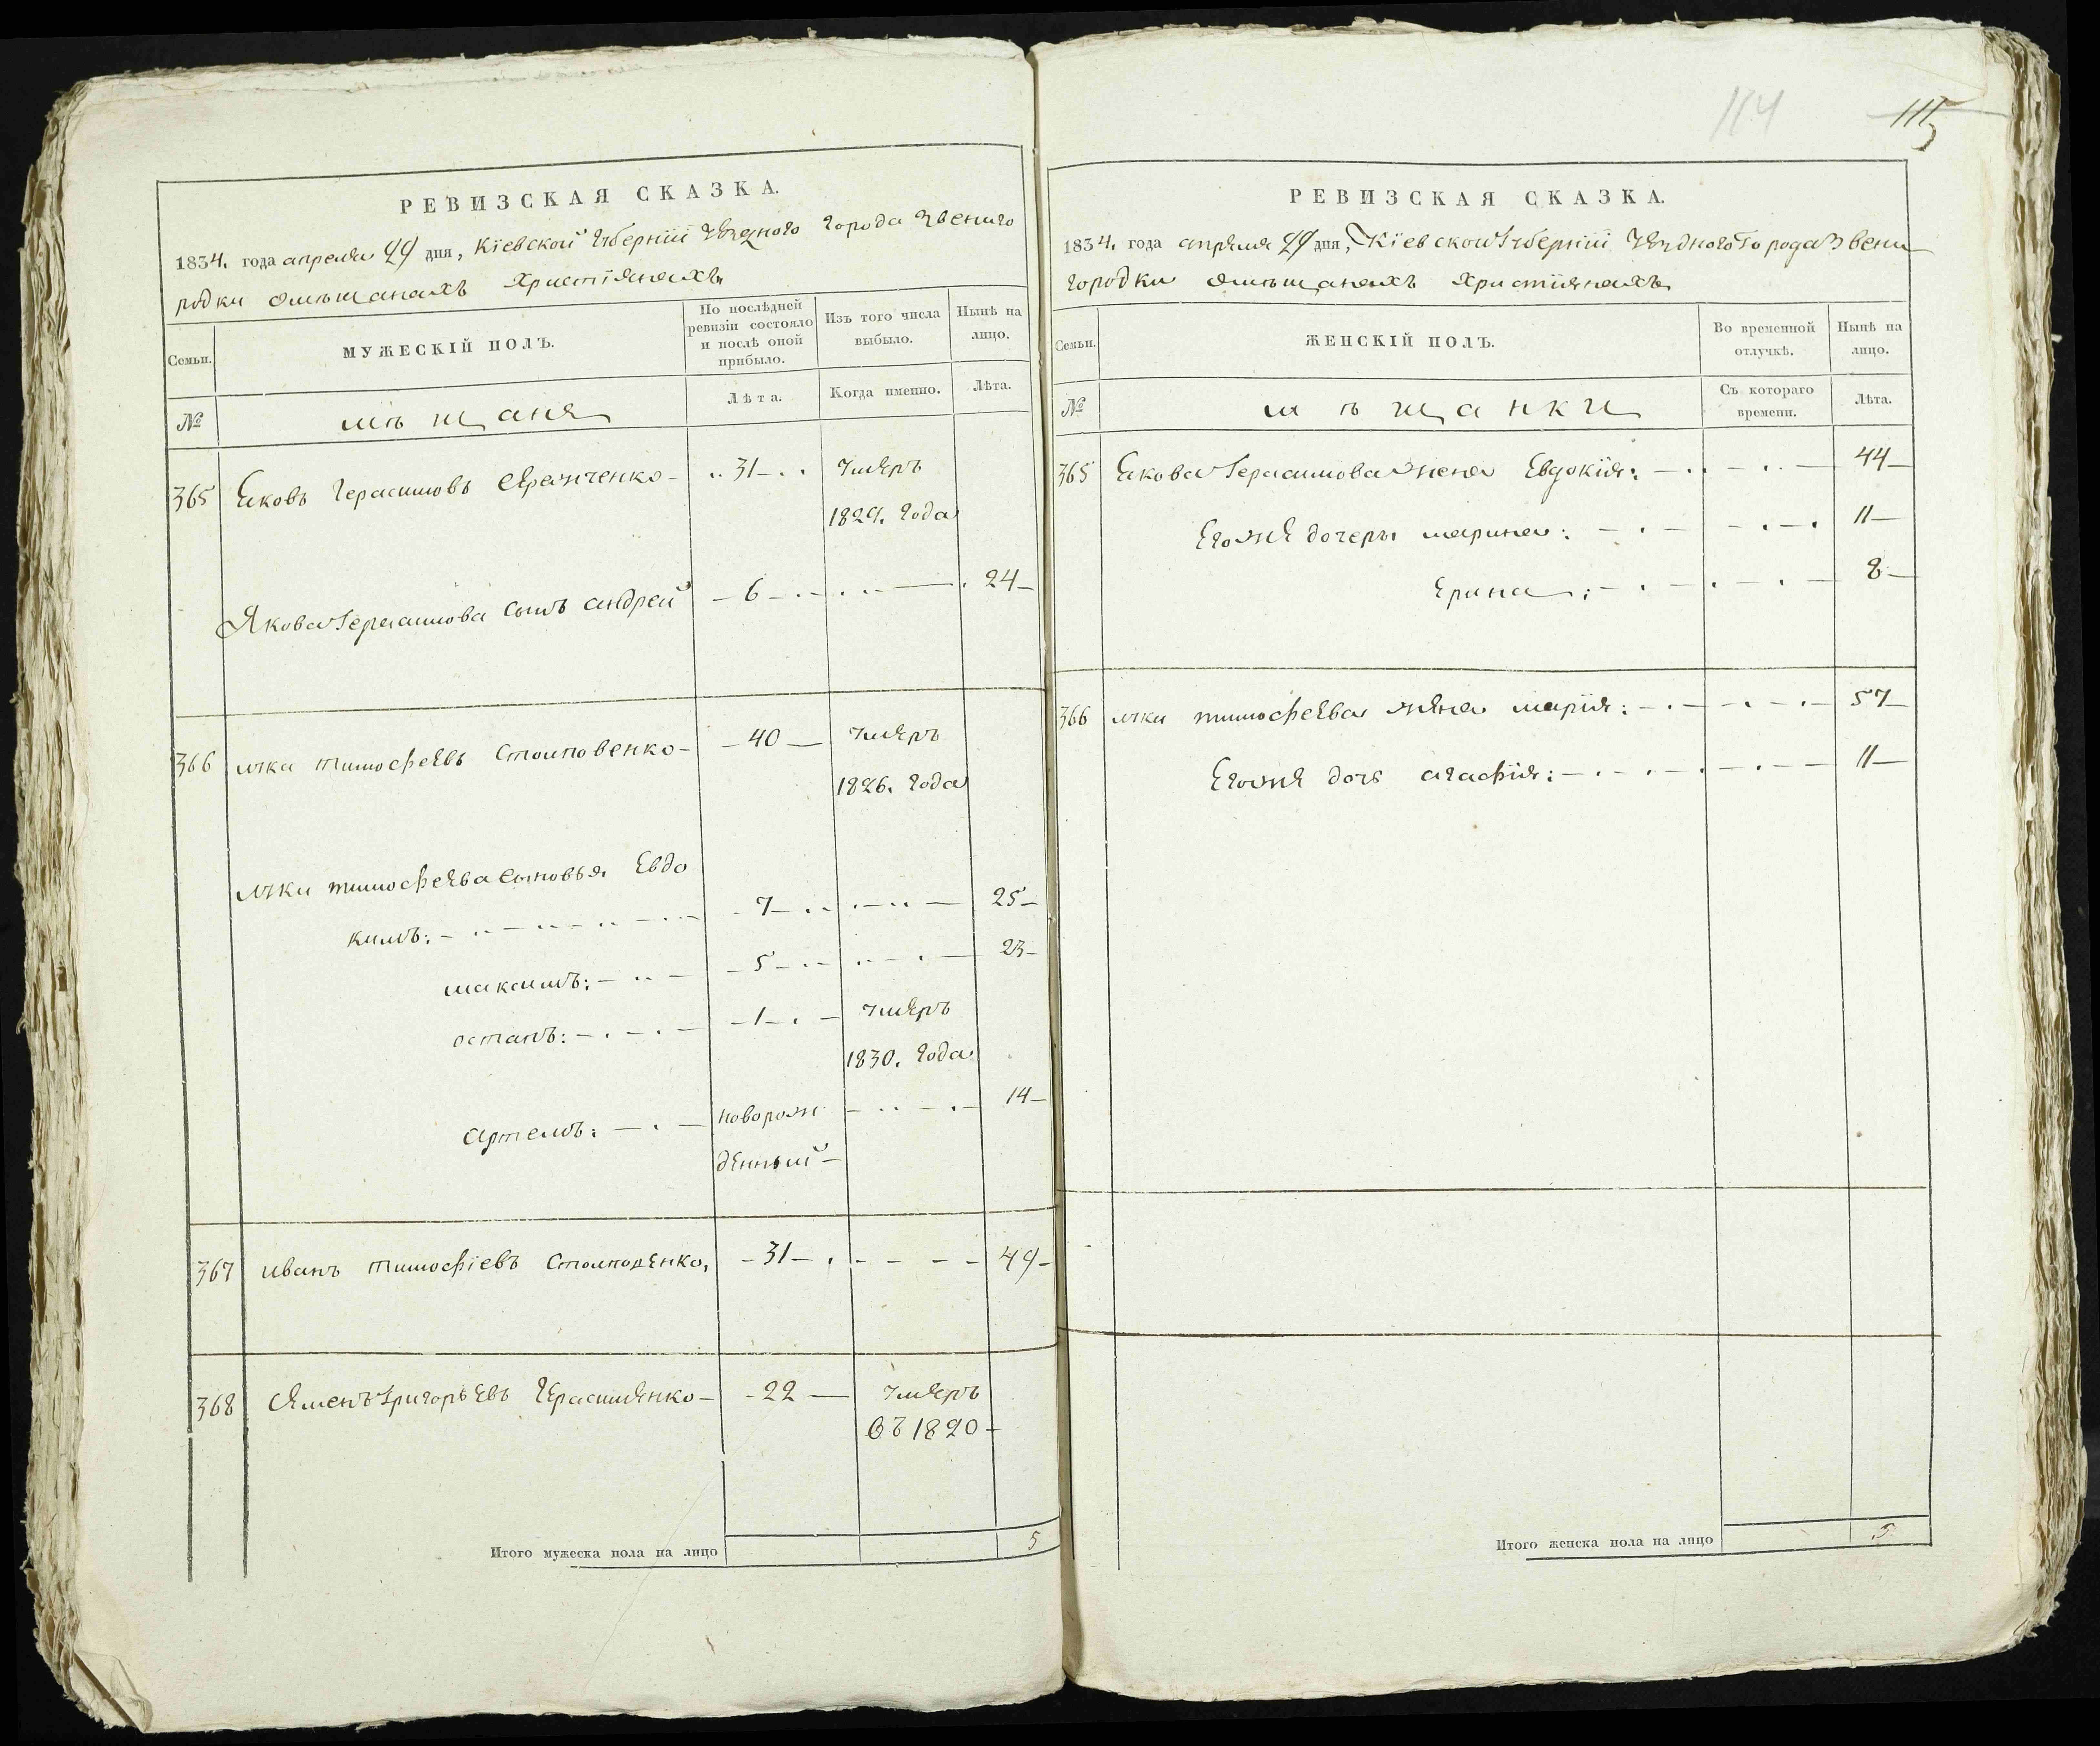 114
115
РЕВИЗСКАЯ СКАЗКА.
1834. года апреля 29 дня, Кіевской Губерніи Уѣзднаго города Звениго
родки омѣщанахъ Христіянахъ
Семьи.
МУЖЕСКІЙ ПОЛЪ.
По послѣдней ревизіи состояло и послѣ оной прибыло.
Изъ того числа выбыло.
Нынѣ на лицо.
№
мѣщаня
Лѣта.
Когда именно.
Лѣта.
365 Яковъ Герасимовъ 31 умеръ
1829. года
Якова Герасимова сынъ андрей 6 24
366 луки тимофеевъ 40 умеръ
1826. года
луки тимофеева сыновья Евдо
кимъ: 7 25
максимъ: 5 23
остапъ: 1 умеръ
1830. года
артемъ: новорож 14
денный
367 иванъ тимофіевъ 31 49
368 Семенъ Григорьевъ Герасименко 22 умеръ
въ 1820
Итого мужеска пола на лицо 5
РЕВИЗСКАЯ СКАЗКА.
1834. года апреля 29 дня, Кіевской Губерніи Уѣзднаго Города Звени
городки омѣщанахъ Христіянахъ
Семьи.
ЖЕНСКІЙ ПОЛЪ.
Во временной отлучкѣ.
Нынѣ на лицо.
№
мѣщанки
Съ котораго времени.
Лѣта.
365 Якова Герасимова жена Евдокія: 44
Егоже дочеры марина: 11
Ерина: 8
366 луки тимофеева жена марія: 57
Егоже дочь агафія: 11
Итого женска пола на лицо 5